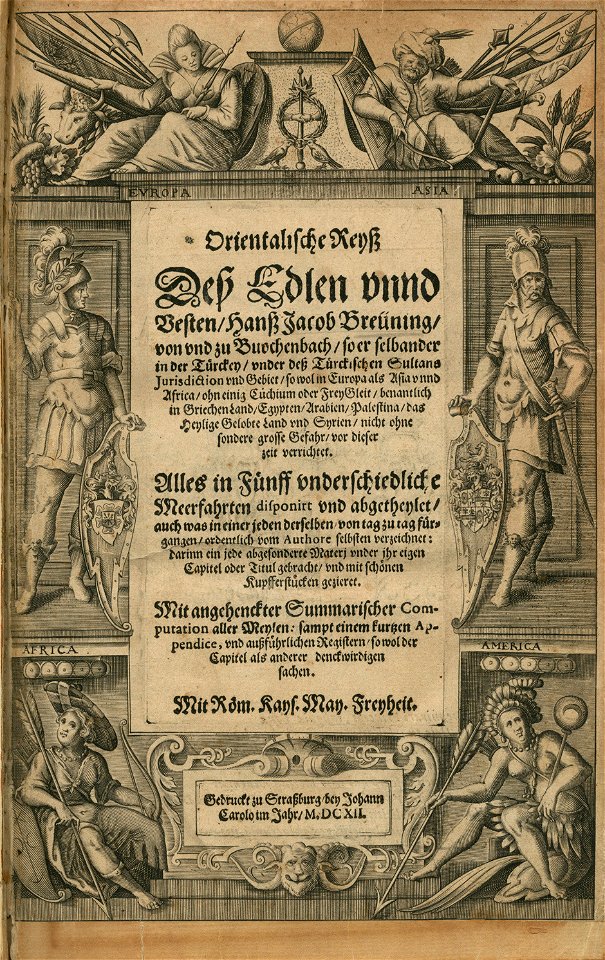 EVROPA
ASIA
Orientalische Reyß
Deß Edlen vnnd
Vesten / Hanß Jacob Breüning /
von vnd zu Buochenbach / so er selbander
in der Türckey / vnder deß Türckischen Sultans
Jurisdiction vnd Gebiet / so wol in Europa als Asia vnnd
Africa / ohn einig Cuchium oder FreyGleit / benantlich
in GriechenLand / Egypten / Arabien / Palestina / das
Heylige Gelobte Land vnd Syrien / nicht ohne
sondere grosse Gefahr / vor dieser
zeit verrichtet.
Alles in Fünff vnderschiedliche
Meerfahrten disponirt vnd abgetheylet /
auch was in einer jeden derselben / von tag zu tag für-
gangen / ordentlich vom Authore selbsten verzeichnet:
darinn ein jede abgesonderte Materj vnder jhr eigen
Capitel oder Titul gebracht / vnd mit schönen
Kupfferstücken gezieret.
Mit angehenckter Summarischer Com-
putation aller Meylen: sampt einem kurtzen Ap-
pendice, vnd außführlichen Registern / so wol der
Capitel als anderer denckwirdigen
sachen.
Mit Röm. Kays. May. Freyheit.
AFRICA
AMERICA
Gedruckt zu Straßburg / bey Johann
Carolo im Jahr / M.DCXII.